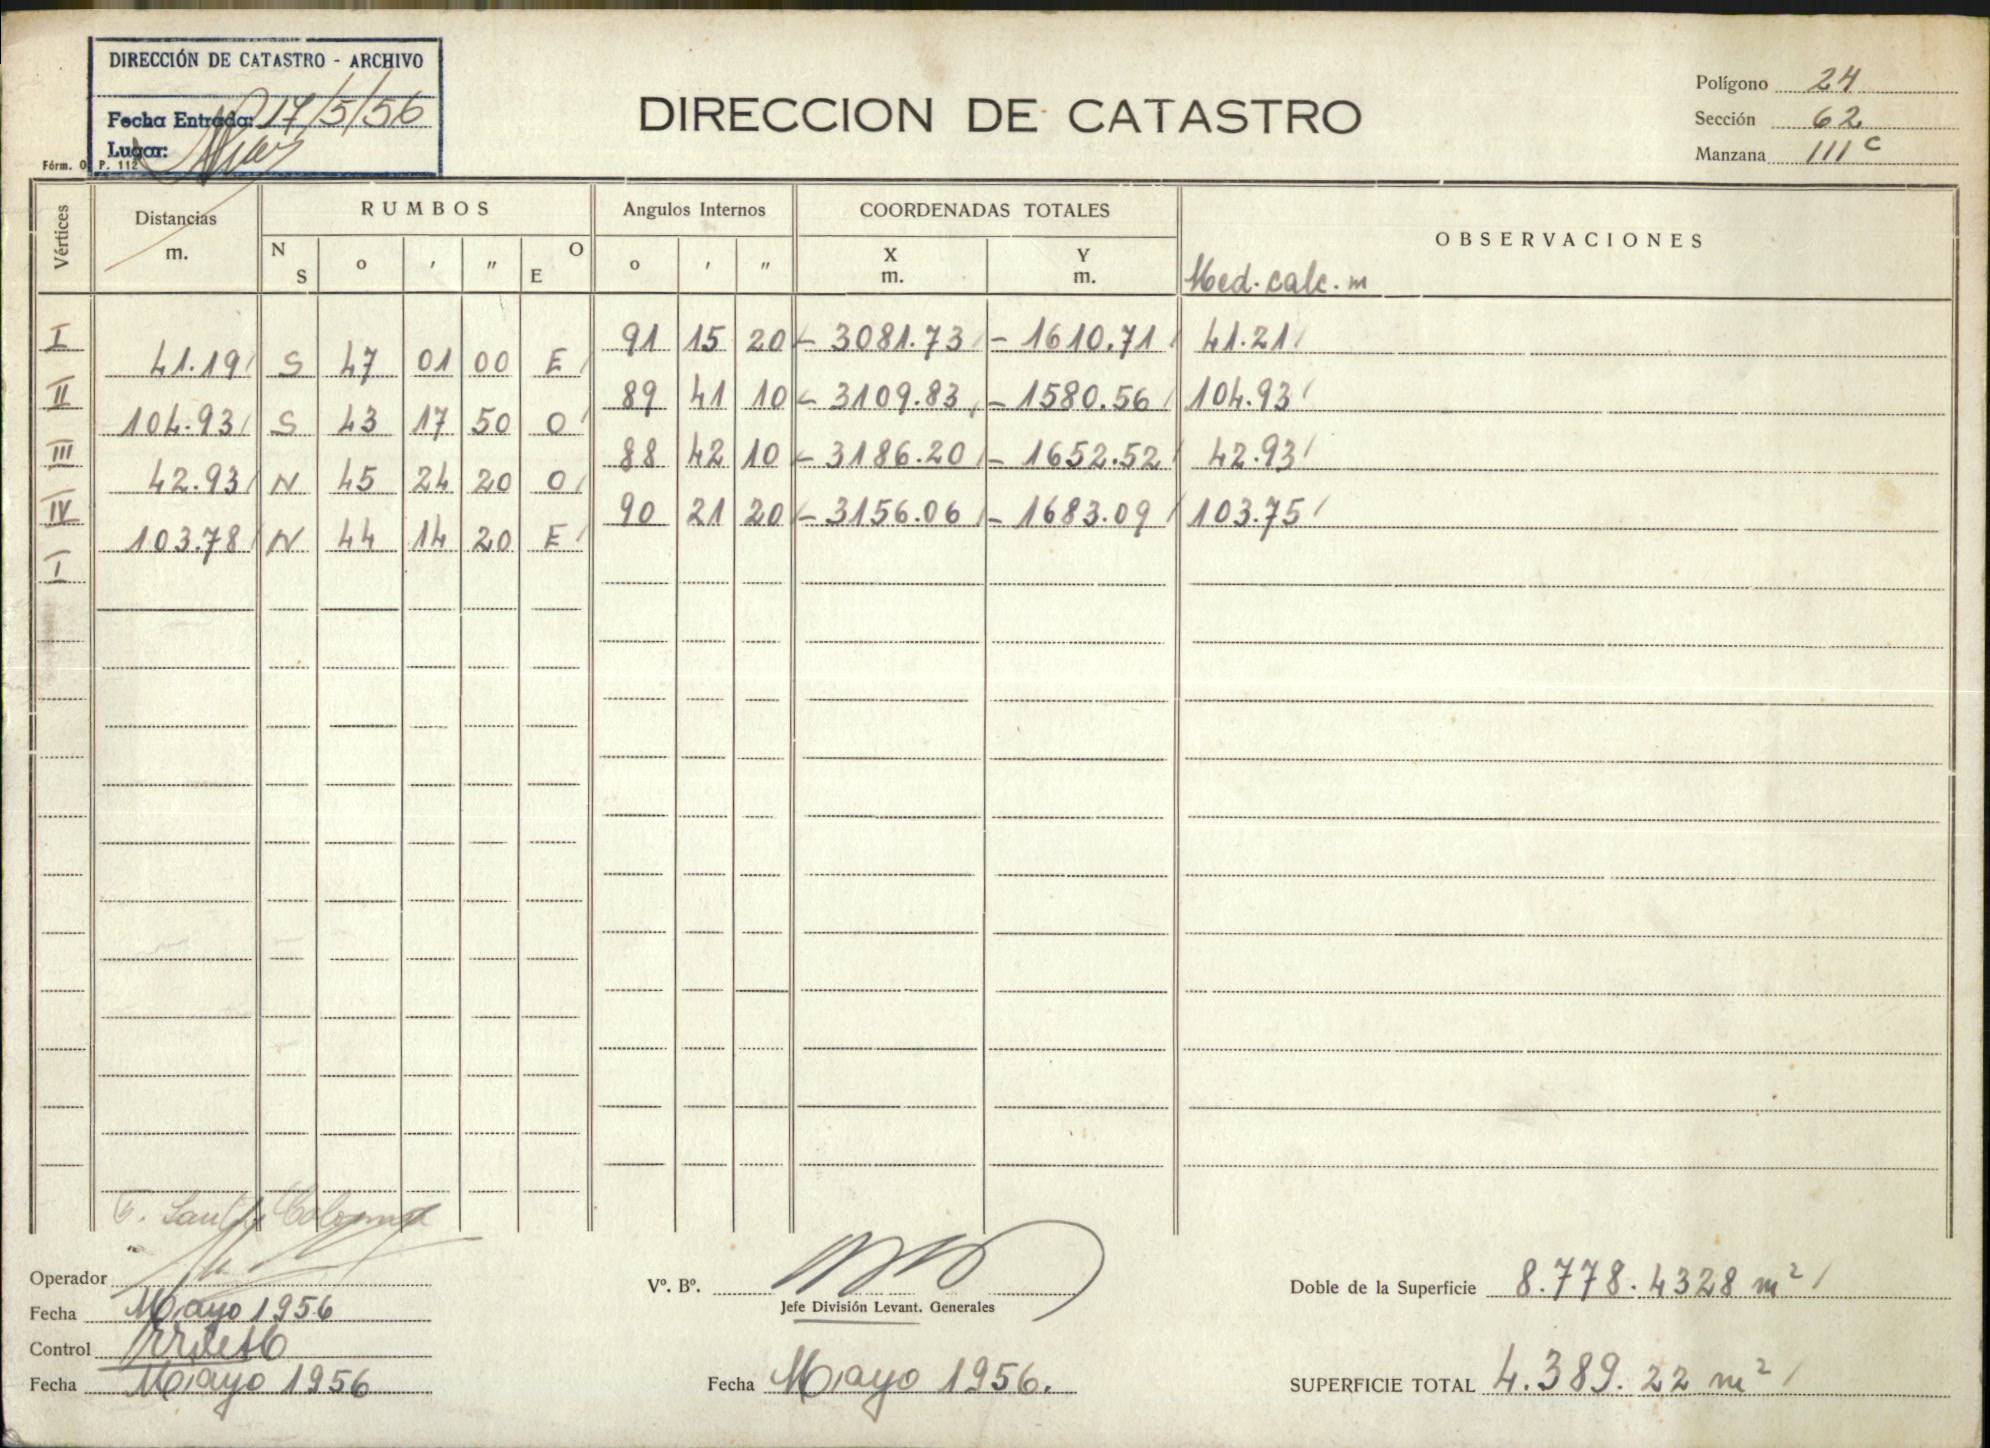 DIRECCIÓN DE CATASTRO - ARCHIVO
Fecha Entrada: 17/5/56
Lugar:
Fórm. O. P. 112
DIRECCION DE CATASTRO
Polígono 24
Sección 62
Manzana 111 c
Vértices Distancias m. RUMBOS N S o ' " O E Angulos Internos o ' " COORDENADAS TOTALES X m. Y m. OBSERVACIONES
Med. calc. m
I 91 15 20 - 3081.73 - 1610.71 41.21
41.19 S 47 01 00 E
II 89 41 10 - 3109.83 - 1580.56 104.93
104.93 S 43 17 50 O
III 88 42 10 - 3186.20 - 1652.52 42.93
42.93 N 45 24 20 O
IV 90 21 20 - 3156.06 - 1683.09 103.75
103.78 N 44 14 20 E
I
Operador
Fecha Mayo 1956
Control
Fecha Mayo 1956
Vº. Bº.
Jefe División Levant. Generales
Fecha Mayo 1956.
Doble de la Superficie 8.778.4328 m²
SUPERFICIE TOTAL 4.389.22 m²